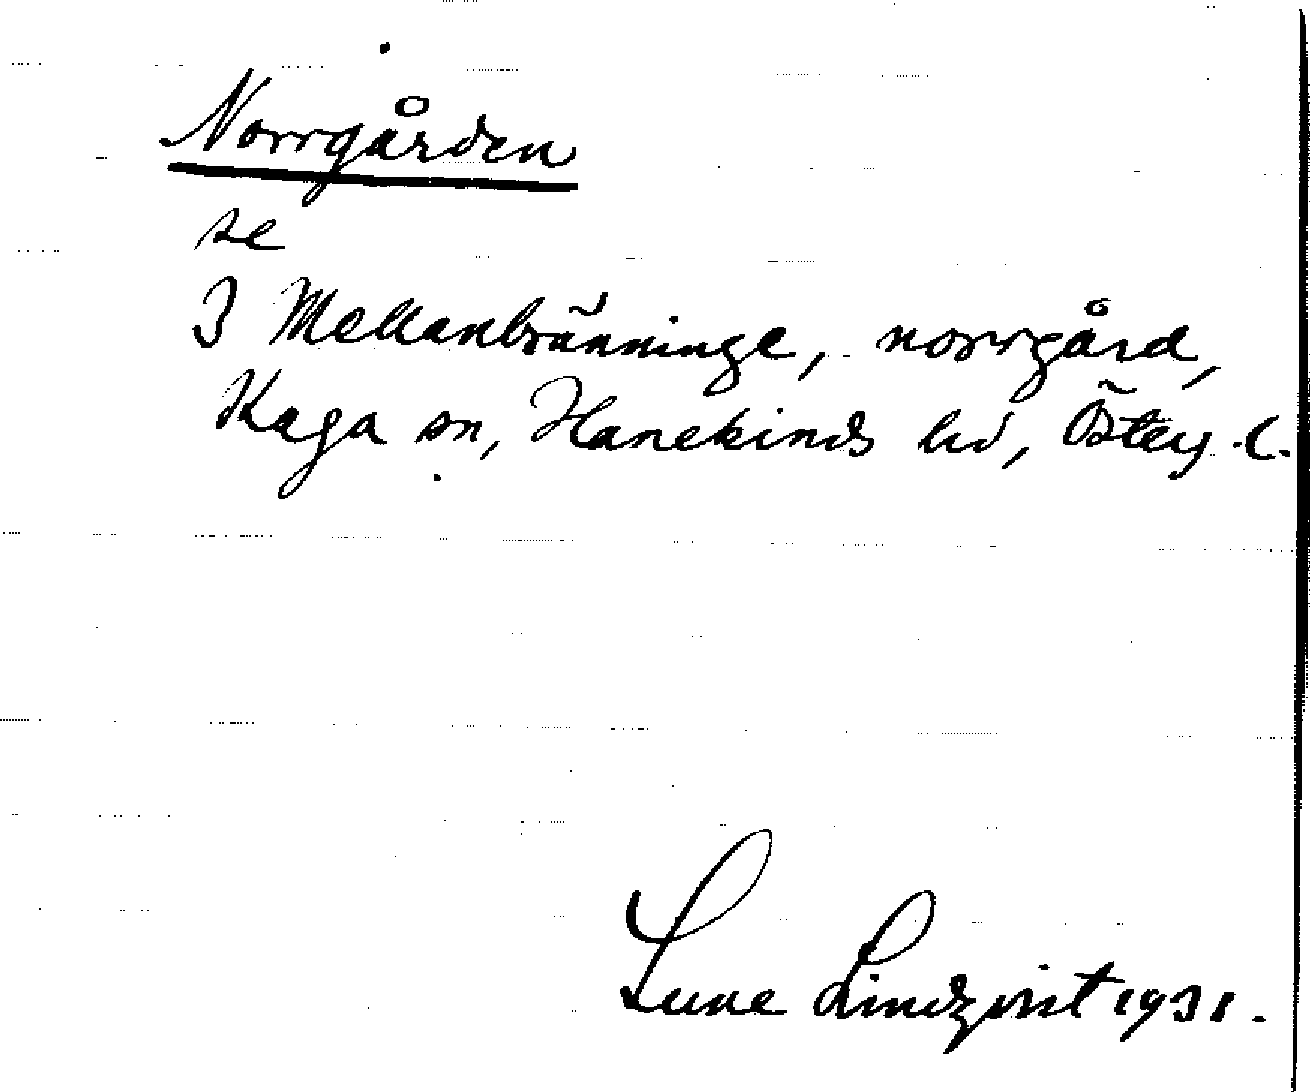 Norrgården
se
I Mellanbränninge, norrgård,
Kaga sn, Hanekinds hd, Österg. l.
Sune Lindqvist 1931.